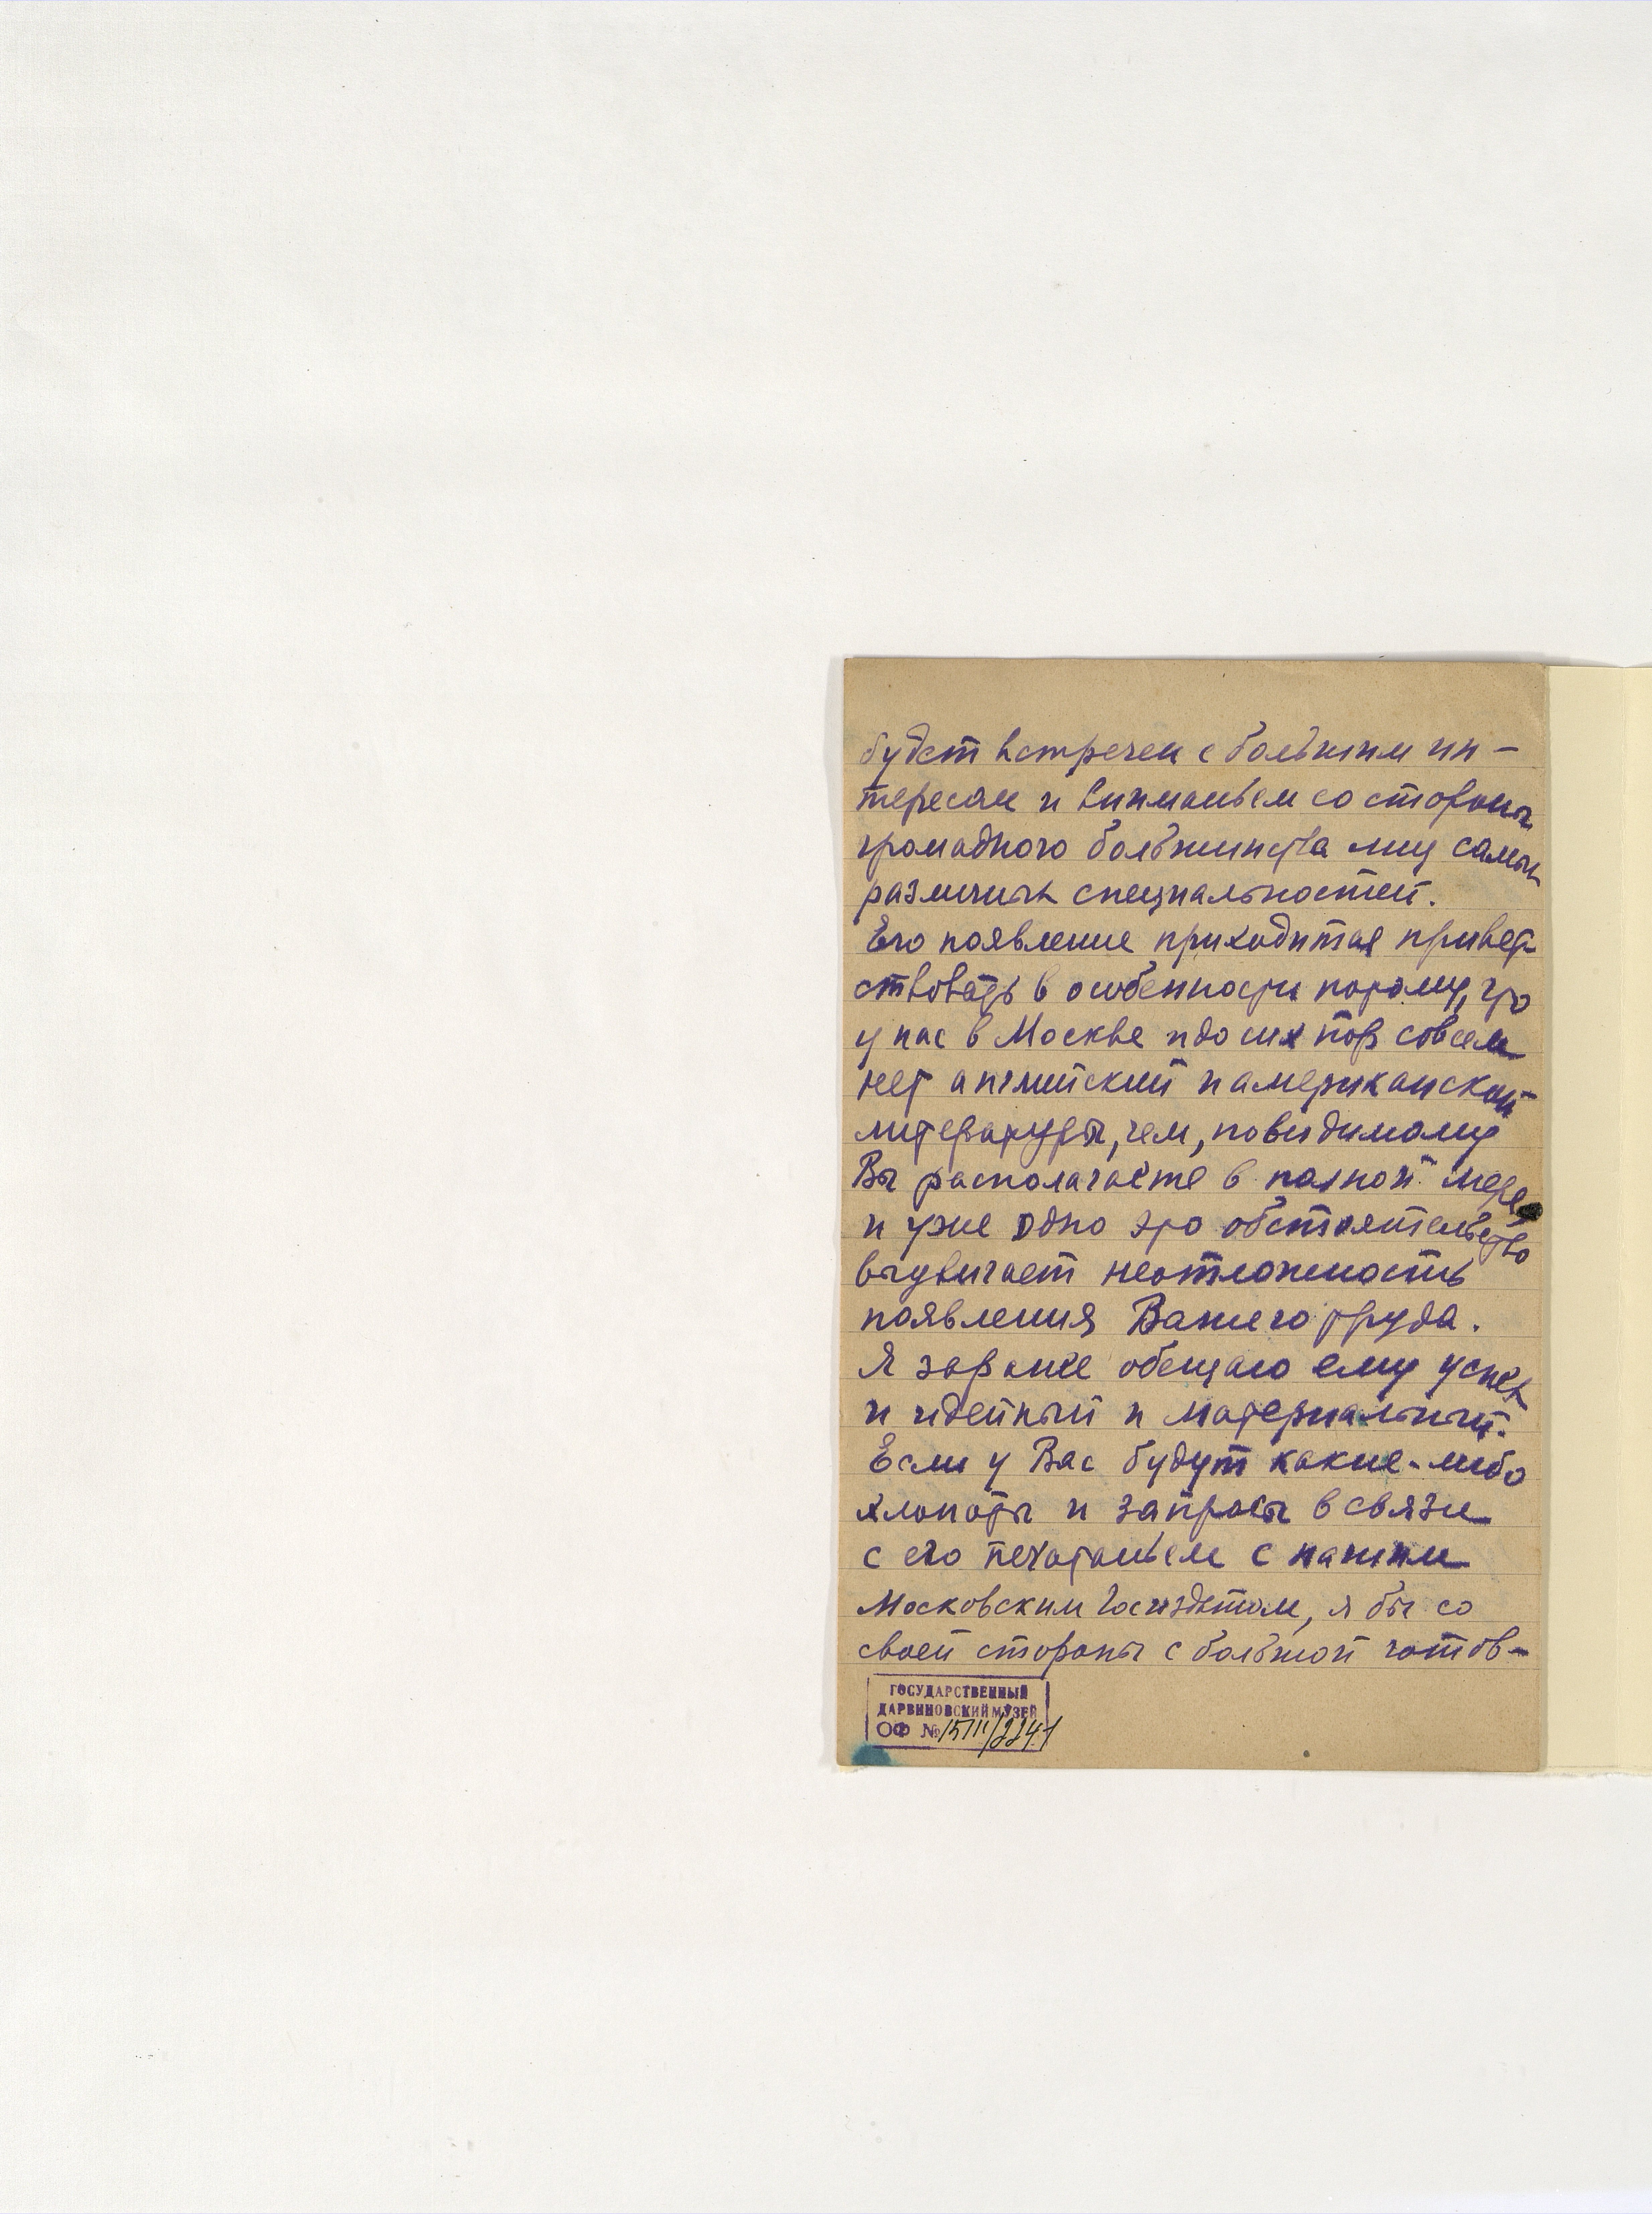 будет встречен с большим ин-
тересом и вниманьем со стороны
громадного большинства лиц самых
различных специальностей.
Его появление приходится привет-
ствовать в особенности потому, что
у нас в Москве и до сих пор совсем
нет английской и американской
литературы, чем, повидимому
Вы располагаете в полной мере
и уже одно это обстоятельство
выдвигает неотложность
появления Вашего труда.
Я заранее обещаю ему успех
и идейный и материальный.
Если у Вас будут какие-либо
хлопоты и запросы в связи
с его печатаньем с нашим
Московским Госиздатом, я бы со
своей стороны с большой готов-
ГОСУДАРСТВЕННЫЙ
ДАРВИНОВСКИЙ МУЗЕЙ
ОФ №15111/2241